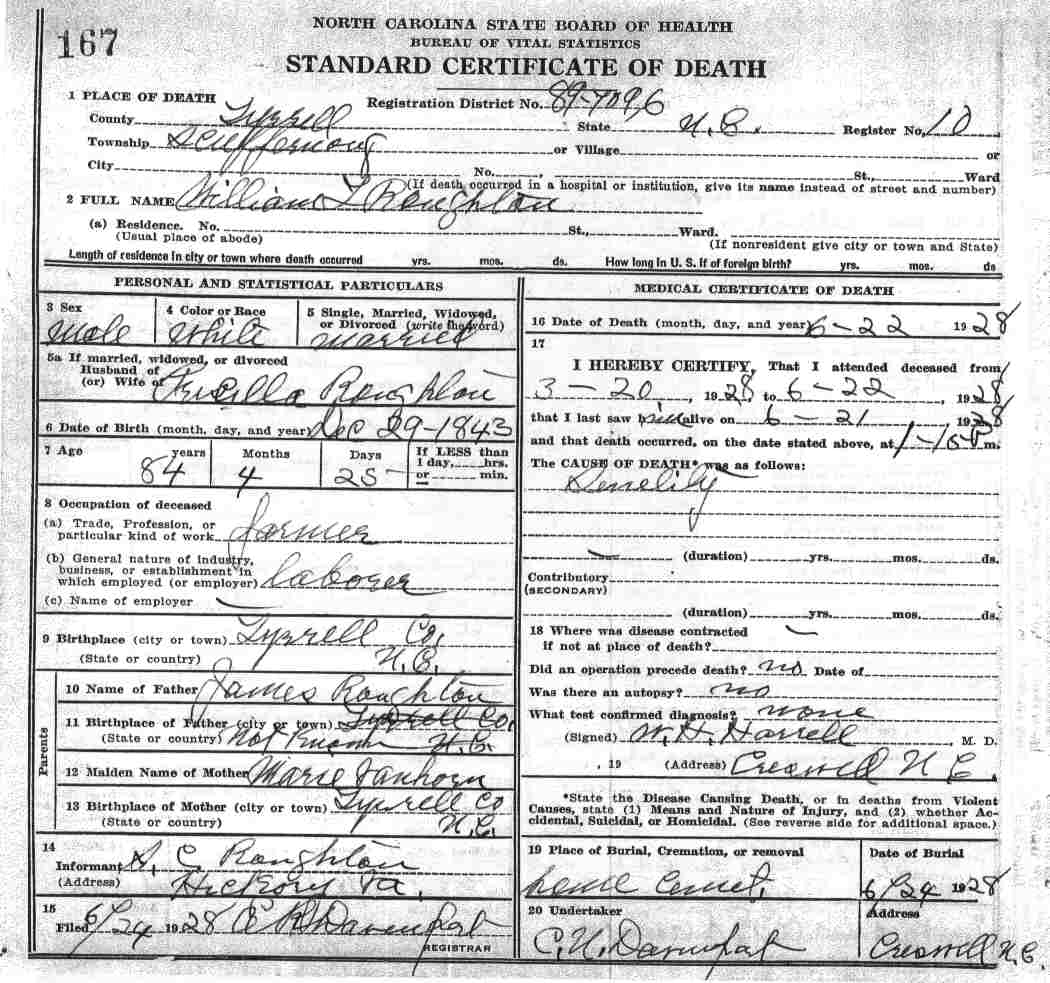 167
NORTH CAROLINA STATE BOARD OF HEALTH
BUREAU OF VITAL STATISTICS
STANDARD CERTIFICATE OF DEATH
1 PLACE OF DEATH Registration District No. 89-7096
County Tyrrell State N.C. Register No. 10
Township Scuppernong or Village or
City No. , St., Ward
(If death occurred in a hospital or institution, give its name instead of street and number)
2 FULL NAME William T Roughton
(a) Residence. No. St., Ward.
(Usual place of abode) (If nonresident give city or town and State)
Length of residence in city or town where death occurred yrs. mos. ds. How long in U. S. if of foreign birth? yrs. mos. ds
PERSONAL AND STATISTICAL PARTICULARS
3 Sex 4 Color or Race 5 Single, Married, Widowed,
or Divorced (write the word)
Male White Married
5a If married, widowed, or divorced
Husband of
(or) Wife of Roughton
6 Date of Birth (month, day, and year) Dec 29-1843
7 Age years Months Days If LESS than
1 day, hrs.
or min.
84 4 25
8 Occupation of deceased
(a) Trade, Profession, or
particular kind of work farmer
(b) General nature of industry,
business, or establishment in
which employed (or employer) laborer
(c) Name of employer
9 Birthplace (city or town) Tyrrell Co.
(State or country) N.C.
Parents
10 Name of Father James Roughton
11 Birthplace of Father (city or town) Tyrrell Co.
(State or country) Not Known N.C.
12 Maiden Name of Mother Marie Vanhorn
13 Birthplace of Mother (city or town) Tyrrell Co
(State or country) N.C.
14
Informant C Roughton
(Address) Hickory Va.
15
Filed 6/24 1928 Davenport
REGISTRAR
MEDICAL CERTIFICATE OF DEATH
16 Date of Death (month, day, and year) 6-22 1928
17
I HEREBY CERTIFY, That I attended deceased from
3-20, 1928, to 6-22, 1928
that I last saw him alive on 6-21 1928
and that death occurred, on the date stated above, at m.
The CAUSE OF DEATH* was as follows:
Senelity
(duration) yrs. mos. ds.
Contributory
(SECONDARY)
(duration) yrs. mos. ds.
18 Where was disease contracted
if not at place of death?
Did an operation precede death? no Date of
Was there an autopsy? no
What test confirmed diagnosis? none
(Signed) W. H. Harrell, M. D.
, 19 (Address) Creswell N C
*State the Disease Causing Death, or in deaths from Violent
Causes, state (1) Means and Nature of Injury, and (2) whether Ac-
cidental, Suicidal, or Homicidal. (See reverse side for additional space.)
19 Place of Burial, Cremation, or removal Date of Burial
Home Cemet. 6/24 1928
20 Undertaker Address
Davenport Creswell N.C.